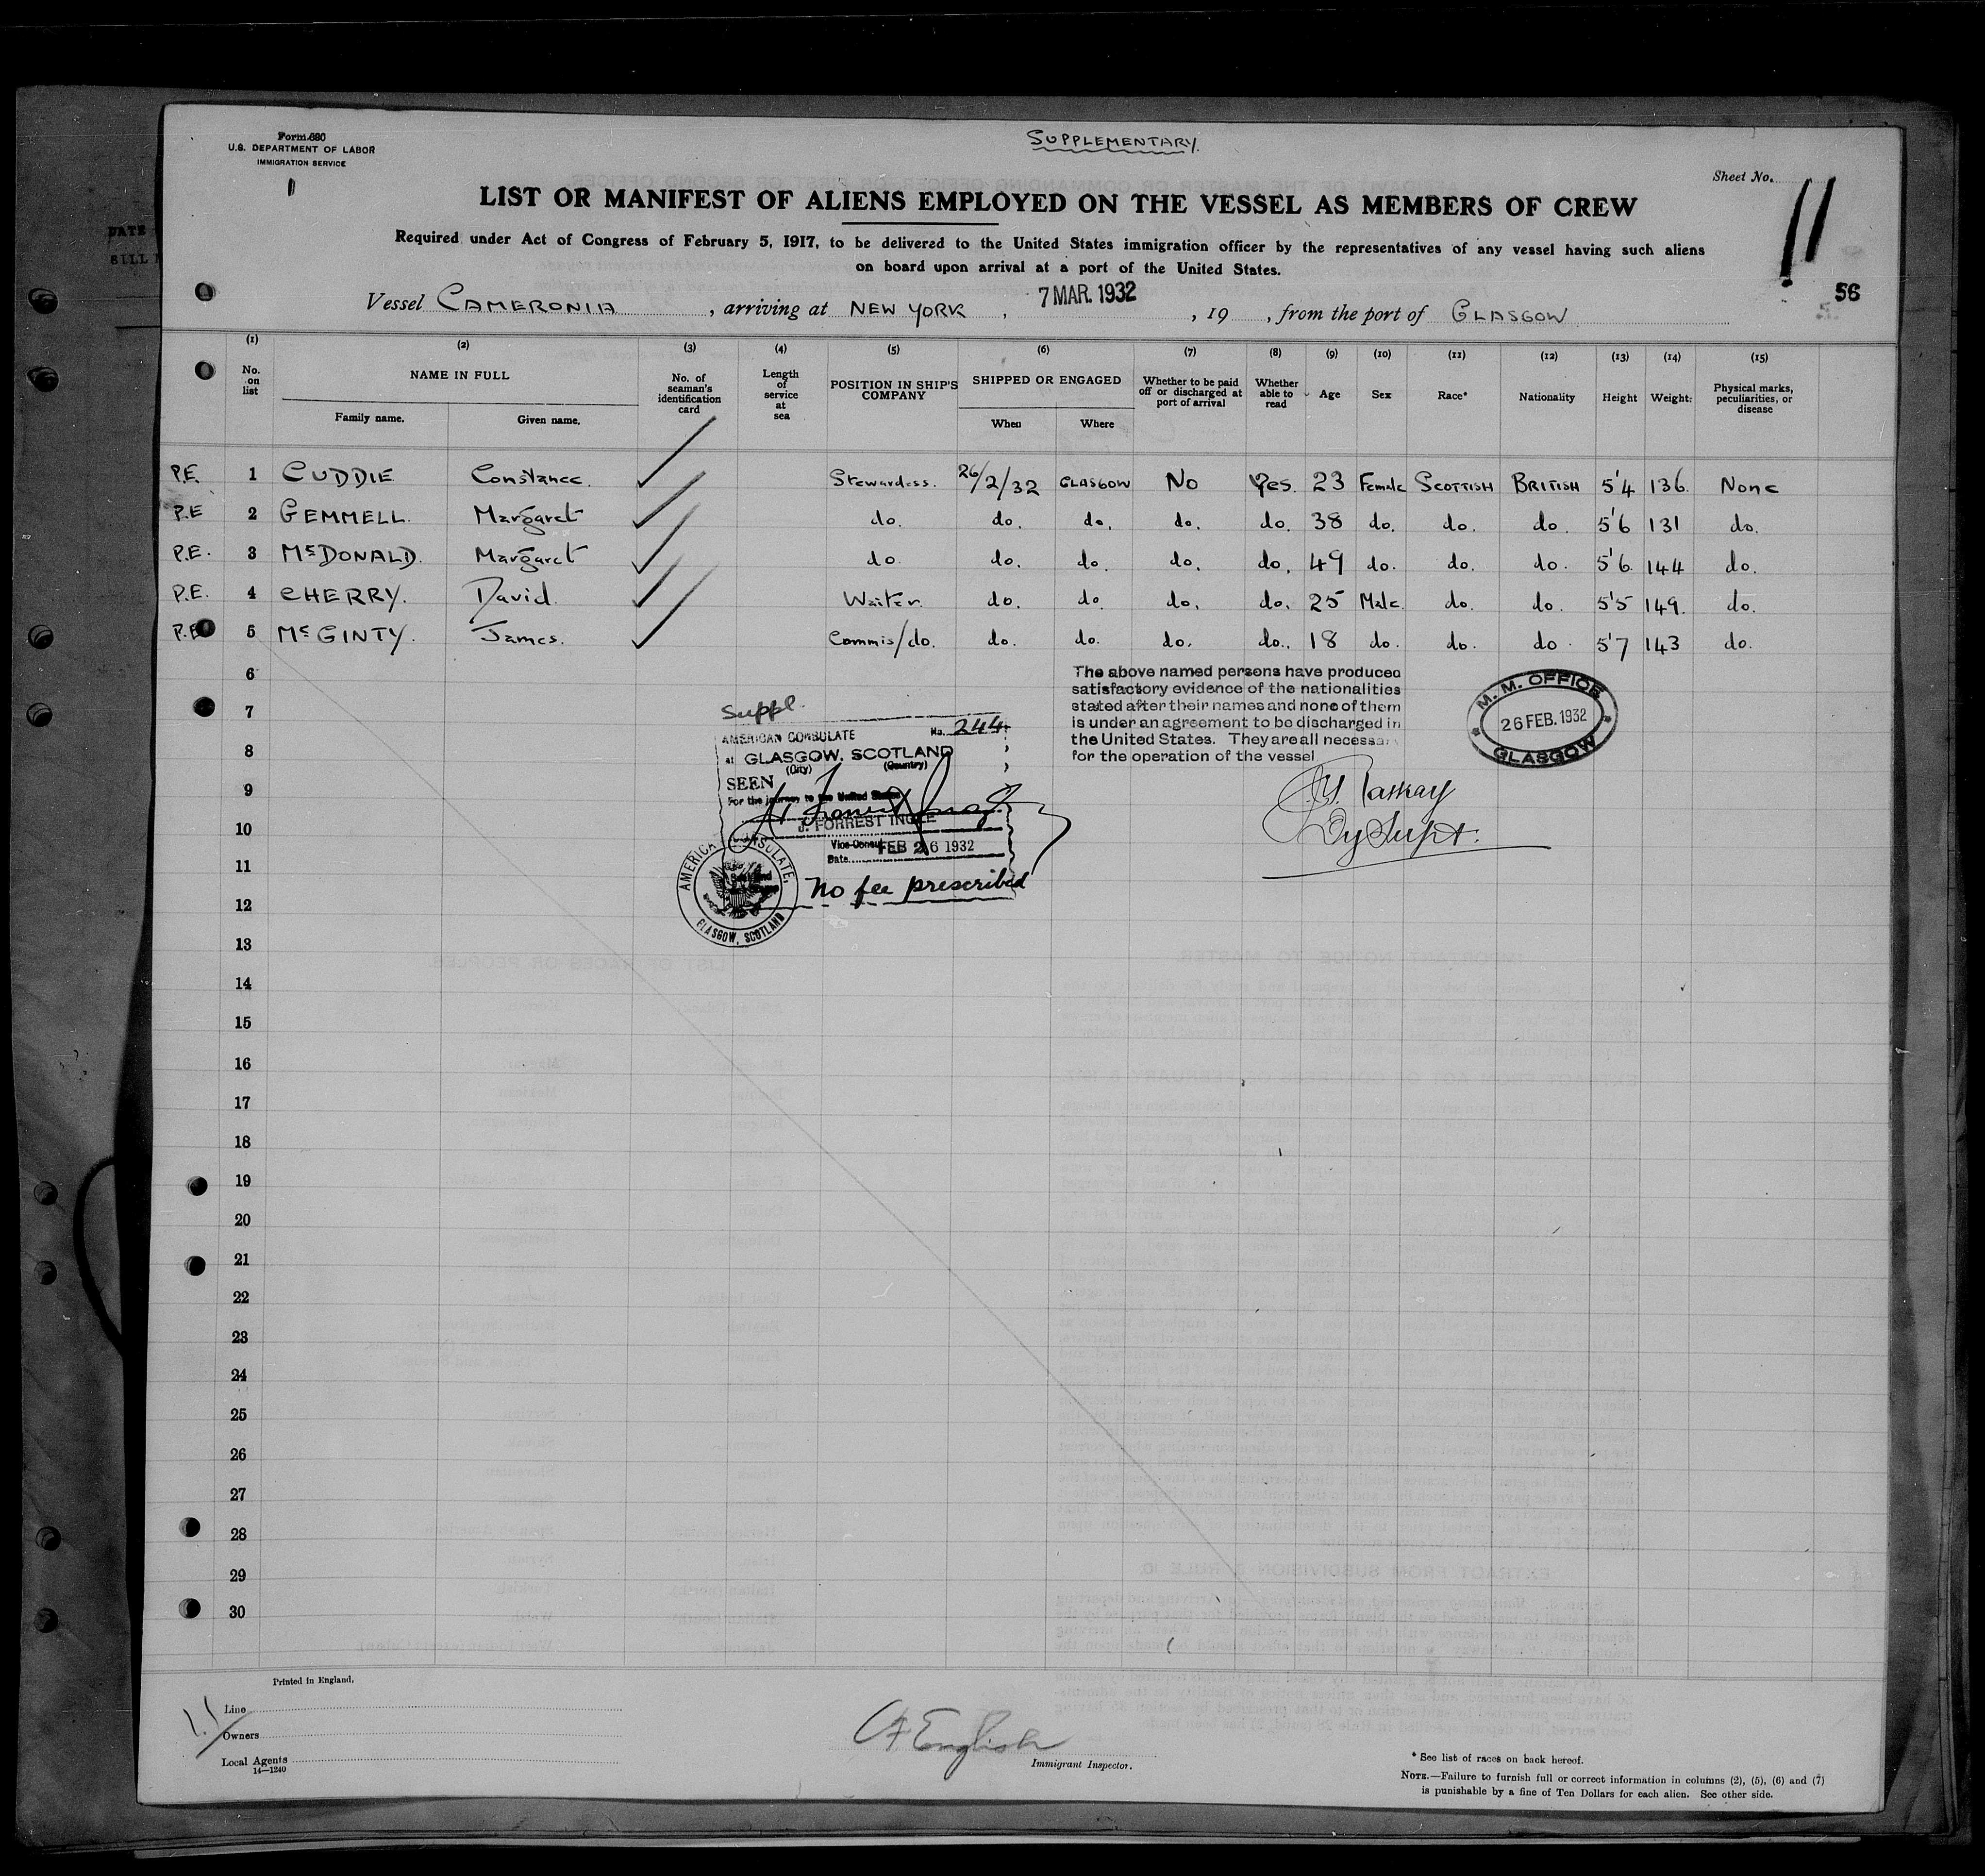 Form 680
U.S. DEPARTMENT OF LABOR
IMMIGRATION SERVICE
SUPPLEMENTARY.
Sheet No. 11
LIST OR MANIFEST OF ALIENS EMPLOYED ON THE VESSEL AS MEMBERS OF CREW
Required under Act of Congress of February 5, 1917, to be delivered to the United States immigration officer by the representatives of any vessel having such aliens
on board upon arrival at a port of the United States.
56
Vessel CAMERONIA, arriving at NEW YORK, 7 MAR. 1932, 19 , from the port of GLASGOW
(1) (2) (3) (4) (5) (6) (7) (8) (9) (10) (11) (12) (13) (14) (15)
No. on list NAME IN FULL Family name. Given name. No. of seaman's identification card Length of service at sea POSITION IN SHIP'S COMPANY SHIPPED OR ENGAGED When Where Whether to be paid off or discharged at port of arrival Whether able to read Age Sex Race* Nationality Height Weight: Physical marks, peculiarities, or disease
P.E. 1 CUDDIE Constance. Stewardess. 26/2/32 GLASGOW No Yes. 23 Female SCOTTISH BRITISH 5'4 136. None
P.E 2 GEMMELL. Margaret do. do. do. do. do. 38 do. do. do. 5'6 131 do.
P.E. 3 McDONALD. Margaret do do. do. do. do. 49 do. do. do. 5'6. 144 do.
P.E. 4 CHERRY. David. Waiter. do. do. do. do. 25 Male. do. do. 5'5 149. do.
P.E 5 McGINTY. James. Commis/do. do. do. do. do.. 18 do. do. do. 5'7 143 do.
6
7
8
9
10
11
12
13
14
15
16
17
18
19
20
21
22
23
24
25
26
27
28
29
30
The above named persons have produced
satisfactory evidence of the nationalities
stated after their names and none of them
is under an agreement to be discharged in
the United States. They are all necessar
for the operation of the vessel
M. M. OFFICE
26 FEB. 1932
GLASGOW
Dy Supt.
Suppl.
AMERICAN CONSULATE No. 244
at GLASGOW, SCOTLAND
(City) (Country)
SEEN
For the journey to the United States
J. FORREST INGLE
Vice-Consul
Date FEB 26 1932
No fee prescribed
AMERICAN CONSULATE,
GLASGOW, SCOTLAND
Printed in England.
Line
Owners
Local Agents
14—1240
English
Immigrant Inspector.
* See list of races on back hereof.
NOTE.—Failure to furnish full or correct information in columns (2), (5), (6) and (7)
is punishable by a fine of Ten Dollars for each alien. See other side.